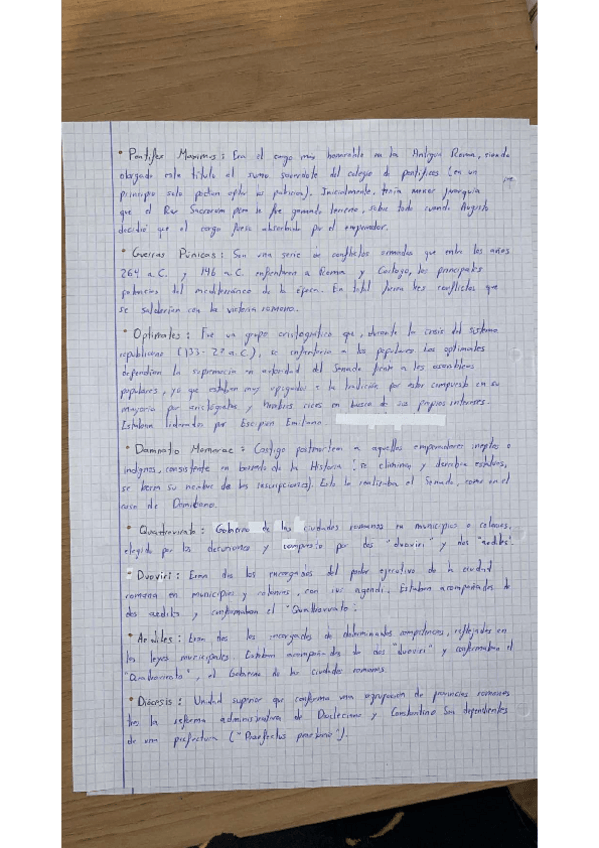 • Pontifex Maximus: Era el cargo más honorable en la Antigua Roma, siendo
otorgado este título al sumo sacerdote del colegio de pontífices (en un
principio solo podían optar los patricios). Inicialmente, tenía menor jerarquía
que el Rex Sacrorum pero la fue ganando, sobre todo cuando Augusto
decidió que el cargo fuese absorbido por el emperador.
• Guerras Púnicas: Son una serie de conflictos armados que entre los años
264 a.C. y 146 a.C. enfrentaron a Roma y Cartago, las principales
potencias del mediterráneo de la época. En total fueron tres conflictos que
se saldarían con la victoria romana.
• Optimates: Fue un grupo aristocrático que, durante la crisis del sistema
republicano (133-27 a.C.), se enfrentaría a los populares. Los optimates
defendían la supremacía en autoridad del Senado frente a las asambleas
populares, ya que estaban muy apegados a la tradición por estar compuesto en su
mayoría por aristócratas y hombres ricos en busca de sus propios intereses.
Estaban liderados por Escipión Emiliano.
• Damnatio Memoriae: Castigo postmortem a aquellos emperadores ineptos o
indignos, consistente en borrarlo de la Historia (se eliminan y derriban estatuas,
se borra su nombre de las inscripciones). Esto lo realizaba el Senado, como en el
caso de Domiciano.
• Quattrovirato: Gobierno de las ciudades romanas en municipios o colonias,
elegido por los decuriones y compuesto por dos "duoviri" y dos "aediles".
• Duoviri: Eran dos los encargados del poder ejecutivo de la ciudad
romana en municipios y colonias, con sus agendi. Estaban acompañados de
dos aediles y conformaban el "Quattrovirato".
• Aediles: Eran dos los encargados de determinadas competencias, reflejadas en
las leyes municipales. Estaban acompañados de dos "duoviri" y conformaban el
"Quattrovirato", el Gobierno de las ciudades romanas.
• Diócesis: Unidad superior que conforma una agrupación de provincias romanas
tras la reforma administrativa de Diocleciano y Constantino. Son dependientes
de una prefectura ("Praefectus praetorio").